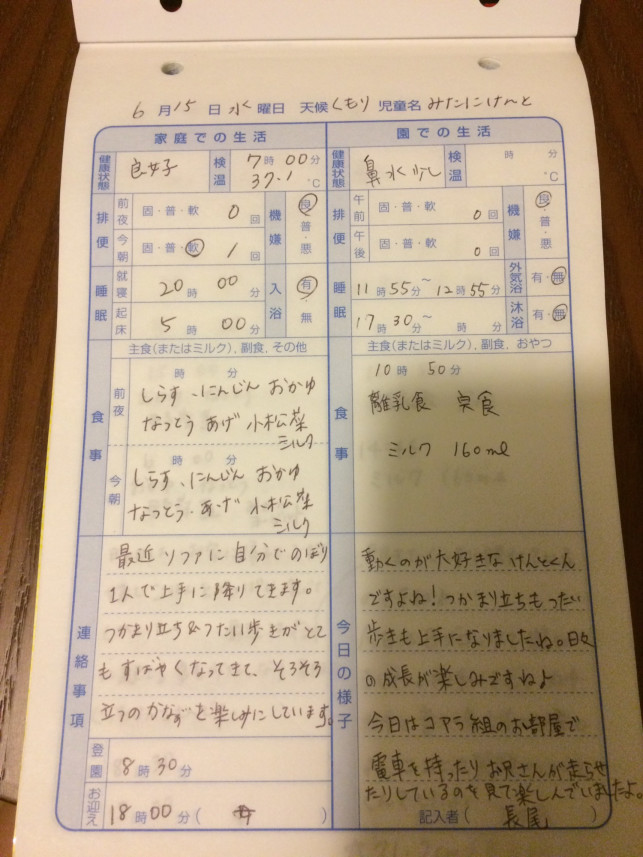 6月15日 水曜日 天候 くもり 児童名 みたにけんと
家庭での生活
健康状態 良好 検温 7時00分 37.1℃
排便 前夜 固・普・軟 0回 機嫌 良・普・悪
今朝 固・普・軟 1回
睡眠 就寝 20時00分 入浴 有・無
起床 5時00分
主食(またはミルク)、副食、その他
食事 前夜 時 分
しらす、にんじん おかゆ
なっとう あげ 小松菜
ミルク
今朝 時 分
しらす、にんじん おかゆ
なっとう、あげ 小松菜
ミルク
連絡事項
最近 ソファに自分でのぼり
1人で上手に降りてきます。
つかまり立ち&つたい歩きがとて
もすばやくなってきて、そろそろ
立つのかなぁ を楽しみにしています。
登園 8時30分
お迎え 18時00分( 母 )
園での生活
健康状態 鼻水少し 検温 時 分 ℃
排便 午前 固・普・軟 0回 機嫌 良・普・悪
午後 固・普・軟 0回
睡眠 11時55分~12時55分 外気浴 有・無
17時30分~ 時 分 沐浴 有・無
主食(またはミルク)、副食、おやつ
食事 10時50分
離乳食 完食
ミルク 160ml
今日の様子
動くのが大好きな けんとくん
ですよね!つかまり立ちもつたい
歩きも上手になりましたね。日々
の成長が楽しみですねよ
今日はコアラ組のお部屋で
電車を持ったりお兄さんが走らせ
たりしているのを見て楽しんでいましたよ。
記入者( 長尾 )